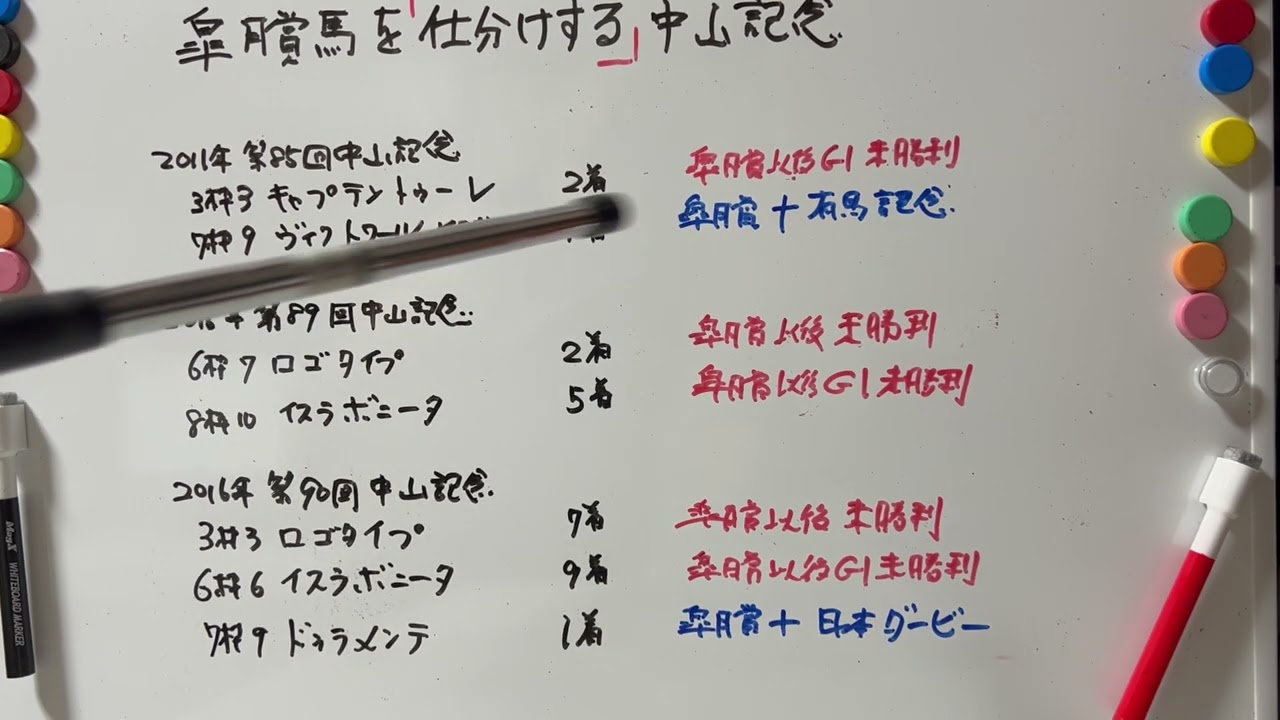 皐月賞馬を「仕分けする」中山記念
2011年 第85回中山記念
3枠3 キャプテントゥーレ 2着 皐月賞以後G1未勝利
7枠9 ヴィクトワール 着 皐月賞+有馬記念
第89回中山記念
6枠7 ロゴタイプ 2着 皐月賞以後未勝利
8枠10 イスラボニータ 5着 皐月賞以後G1未勝利
2016年 第90回中山記念
3枠3 ロゴタイプ 7着 皐月賞以後未勝利
6枠6 イスラボニータ 9着 皐月賞以後G1未勝利
7枠9 ドゥラメンテ 1着 皐月賞+日本ダービー
MagX WHITEBOARD MARKER